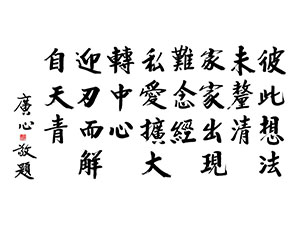 彼此想法
未釐清
家家出現
難念經
私愛擴大
轉中心
迎刃而解
自天青
廣心敬題